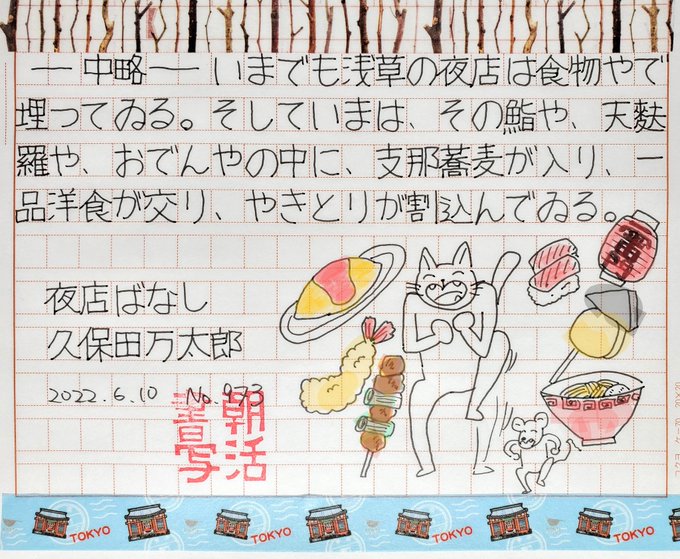 ― 中略 ― いまでも浅草の夜店は食物やで
埋ってゐる。そしていまは、その鮨や、天麩
羅や、おでんやの中に、支那蕎麦が入り、一
品洋食が交り、やきとりが割込んでゐる。
夜店ばなし
久保田万太郎
2022.6.10 No.973
朝活
書写
雷門
TOKYO TOKYO TOKYO TOKYO